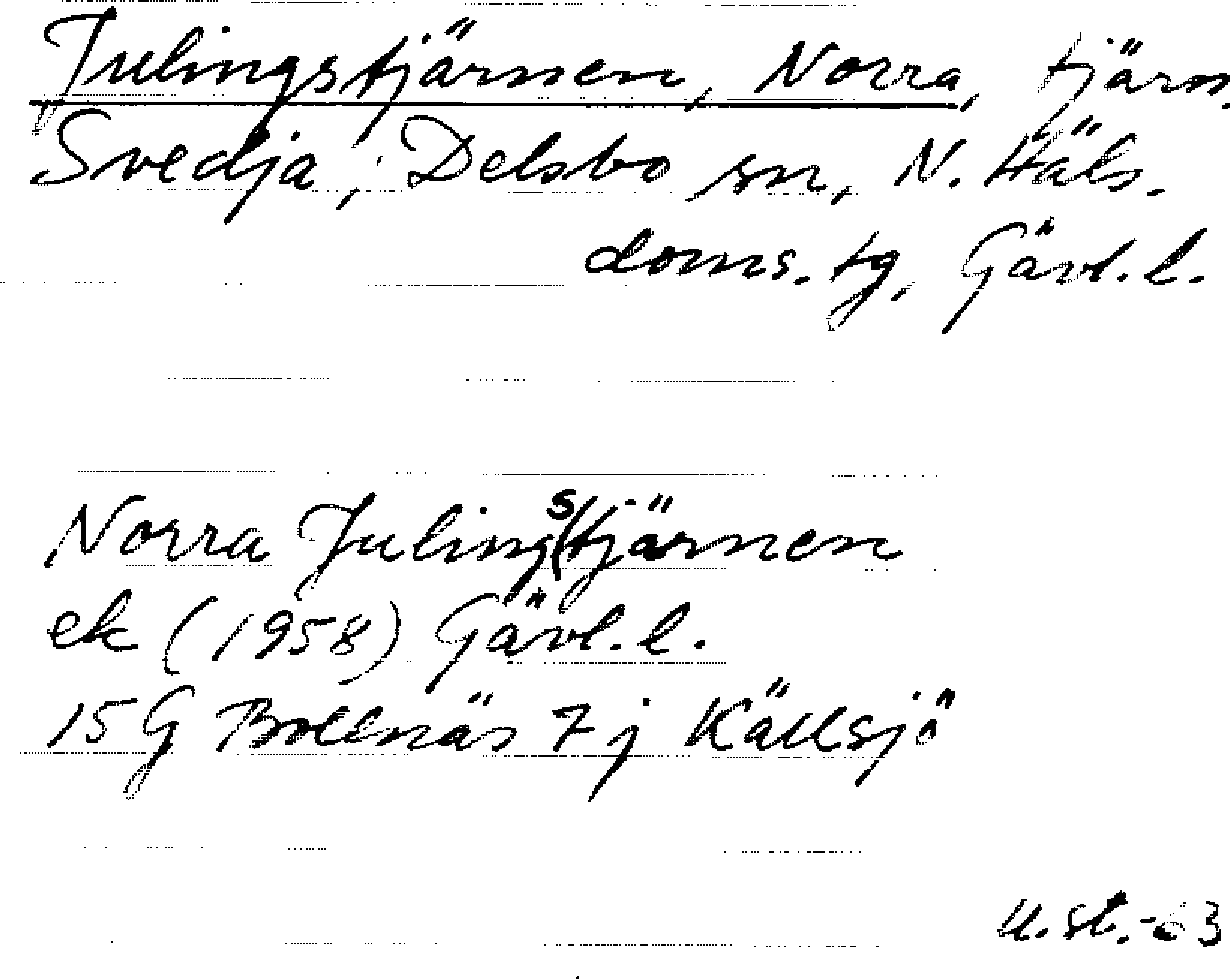 Julingstjärnen, Norra, tjärn.
Svedja, Delsbo sn, N. Häls.
doms. tg, Gävl. l.
Norra Julingstjärnen
ek (1958) Gävl. l.
15 G Bollnäs 7 j Källsjö
U. St. -63